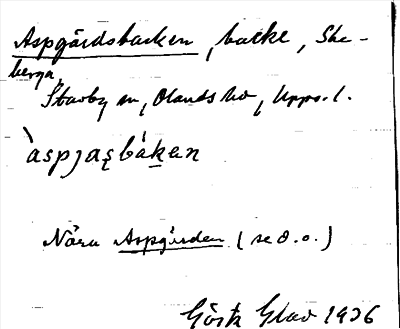 Aspgårdsbacken, backe, Ske-
berga,
Stavby sn, Olands hd, Upps. l.
àspjaʂbákan
Nära Aspgården (se d. o.)
Gösta 1936